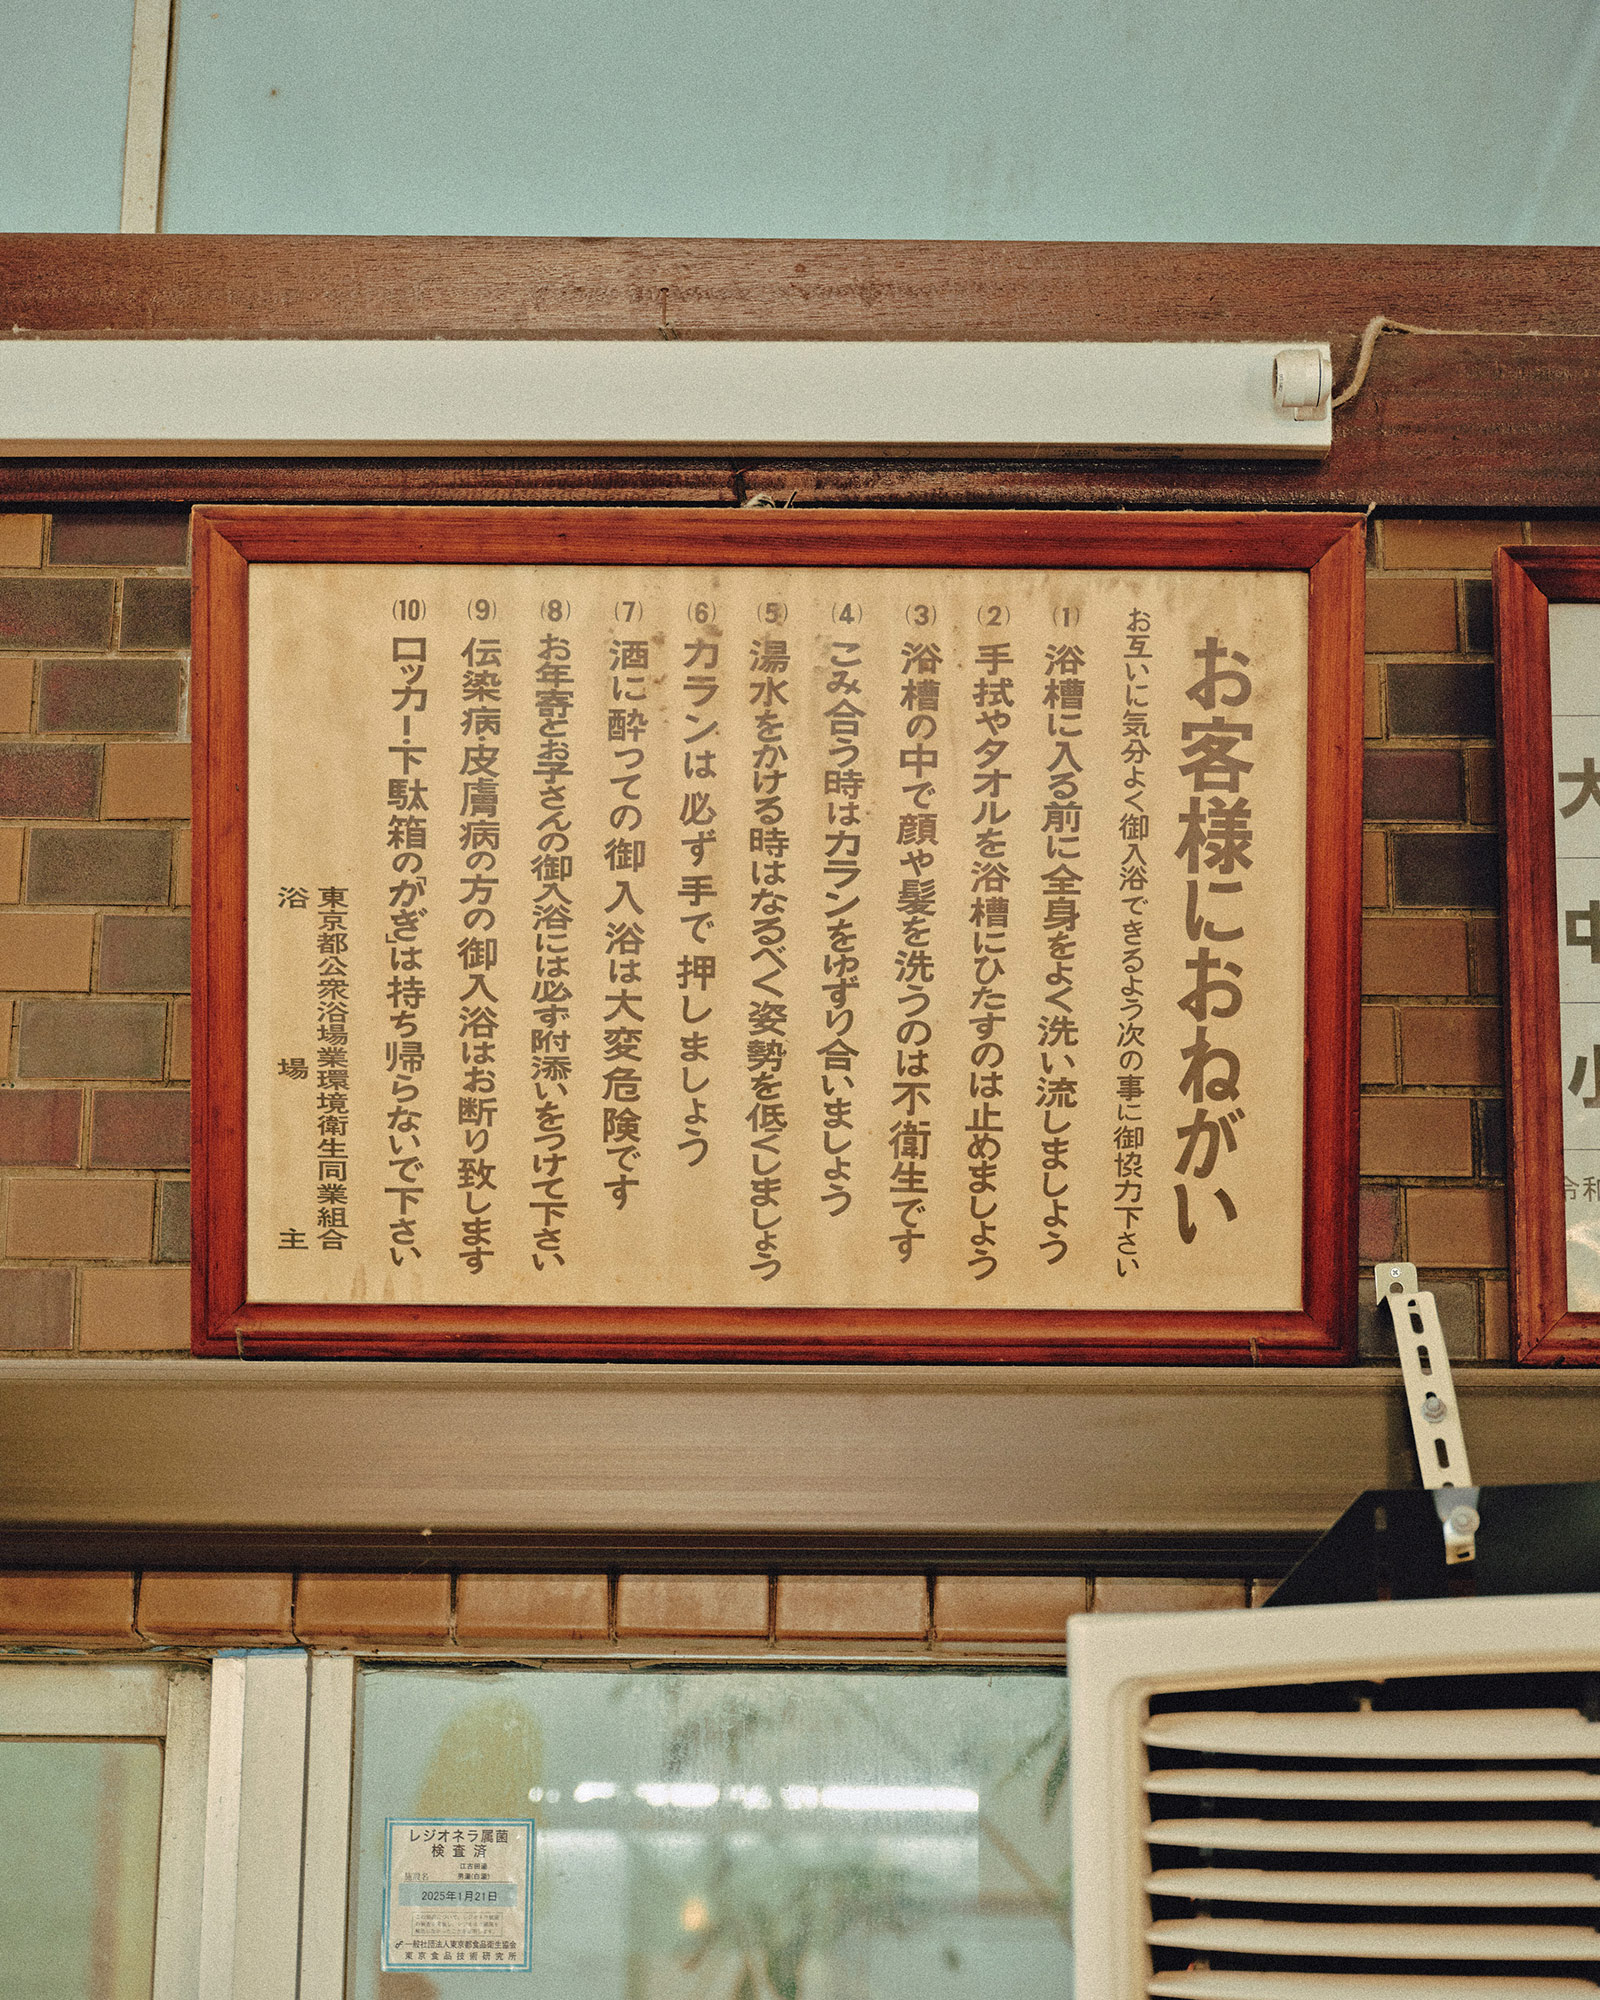 お客様におねがい
お互いに気分よく御入浴できるよう次の事に御協力下さい
(1) 浴槽に入る前に全身をよく洗い流しましょう
(2) 手拭やタオルを浴槽にひたすのは止めましょう
(3) 浴槽の中で顔や髪を洗うのは不衛生です
(4) こみ合う時はカランをゆずり合いましょう
(5) 湯水をかける時はなるべく姿勢を低くしましょう
(6) カランは必ず手で押しましょう
(7) 酒に酔っての御入浴は大変危険です
(8) お年寄とお子さんの御入浴には必ず附添いをつけて下さい
(9) 伝染病・皮膚病の方の御入浴はお断り致します
(10) ロッカー・下駄箱の「かぎ」は持ち帰らないで下さい
東京都公衆浴場業環境衛生同業組合
浴場主
大
中
小
令和
レジオネラ属菌
検査済
江古田湯
施設名 男湯(白湯)
2025年1月21日
一般社団法人東京都食品衛生協会
東京食品技術研究所